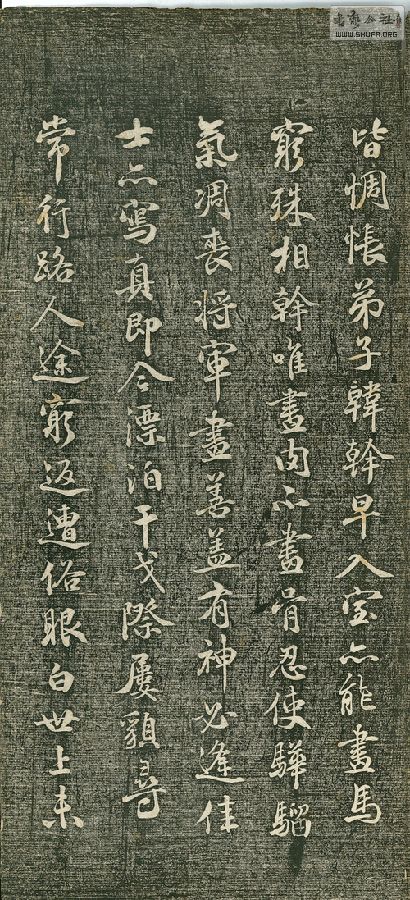 書藝公社
WWW.SHUFA.ORG
皆惆悵弟子韓幹早入室亦能畫馬
窮殊相幹唯畫肉不畫骨忍使驊騮
氣凋喪将軍畫善盖有神必逢佳
士亦寫真即今漂泊干戈際屢貌尋
常行路人途窮返遭俗眼白世上未